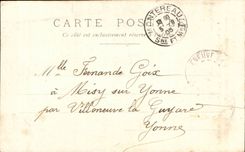 CARTE POS
Ce côté est exclusivement réservé
MONTEREAU
Sne ET Mne
Mlle Fernande Goix
à Misy sur Yonne
par Villeneuve la Guyare
Yonne